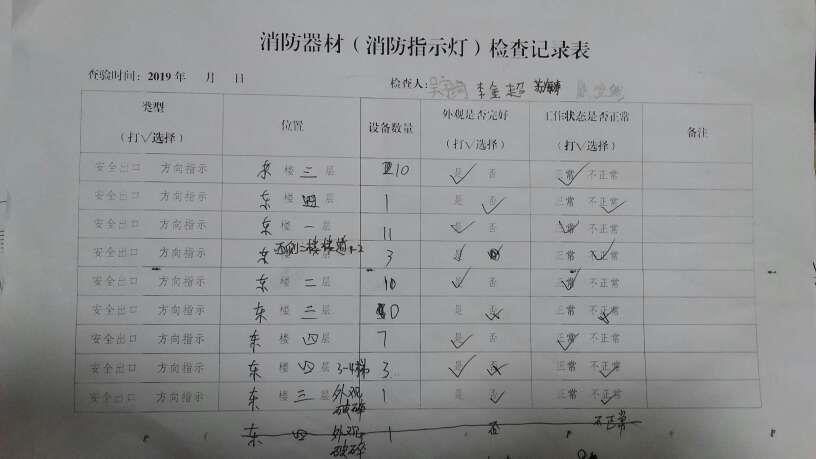 消防器材（消防指示灯）检查记录表
查验时间：2019 年 月 日 检查人： 李金超
类型（打√选择） 位置 设备数量 外观是否完好（打√选择） 工作状态是否正常（打√选择） 备注
安全出口 方向指示 东 楼 三 层 10 是√ 否 正常√ 不正常
安全出口 方向指示 东 楼 四 层 1 是 否√ 正常 不正常√
安全出口 方向指示 东 楼 一 层 11 是√ 否 正常√ 不正常
安全出口 方向指示 东 西侧二楼楼道 层 3 是√ 否 正常 不正常√
安全出口 方向指示 东 楼 二 层 10 是√ 否 正常√ 不正常
安全出口 方向指示 东 楼 三 层 0 是 否 正常 不正常
安全出口 方向指示 东 楼 四 层 7 是√ 否 正常√ 不正常
安全出口 方向指示 东 楼 四 层 3-4梯 3 是√ 否 正常 不正常√
安全出口 方向指示 东 楼 三 层 外观破碎 1 是 否√ 正常 不正常√
东 四 外观破碎 1 否 不正常